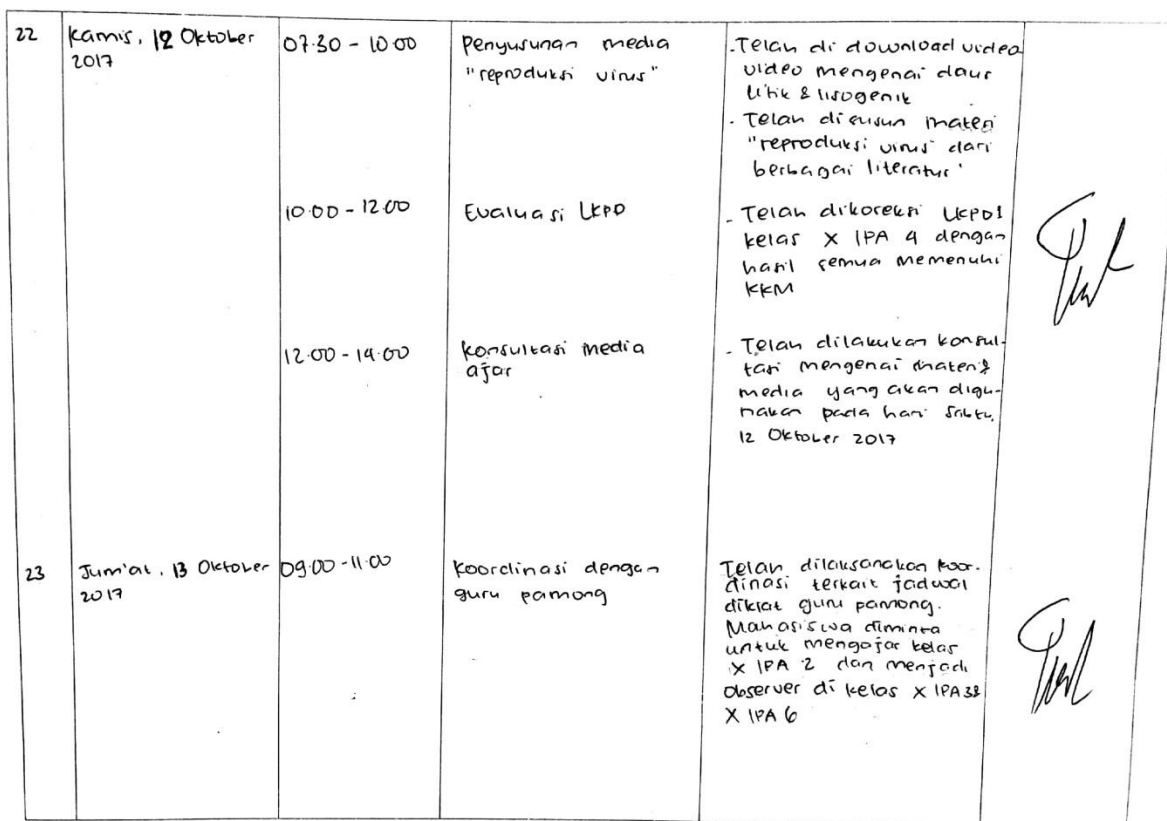 22
Kamis, 12 Oktober
2017
07.30 - 10.00
Penyusunan media
"reproduksi virus"
- Telah di download video
video mengenai daur
litik & lisogenik
- Telah disusun materi
"reproduksi virus" dari
berbagai literatur'
10.00 - 12.00
Evaluasi LKPD
- Telah dikoreksi LKPD1
kelas X IPA 4 dengan
hasil semua memenuhi
KKM
12.00 - 14.00
Konsultasi media
ajar
- Telah dilakukan konsul-
tasi mengenai materi &
media yang akan digu-
nakan pada hari Sabtu,
12 Oktober 2017
23
Jum'at, 13 Oktober
2017
09.00 - 11.00
Koordinasi dengan
guru pamong
Telah dilaksanakan koor-
dinasi terkait jadwal
diklat guru pamong.
Mahasiswa diminta
untuk mengajar kelas
X IPA 2 dan menjadi
observer di kelas X IPA 3 &
X IPA 6